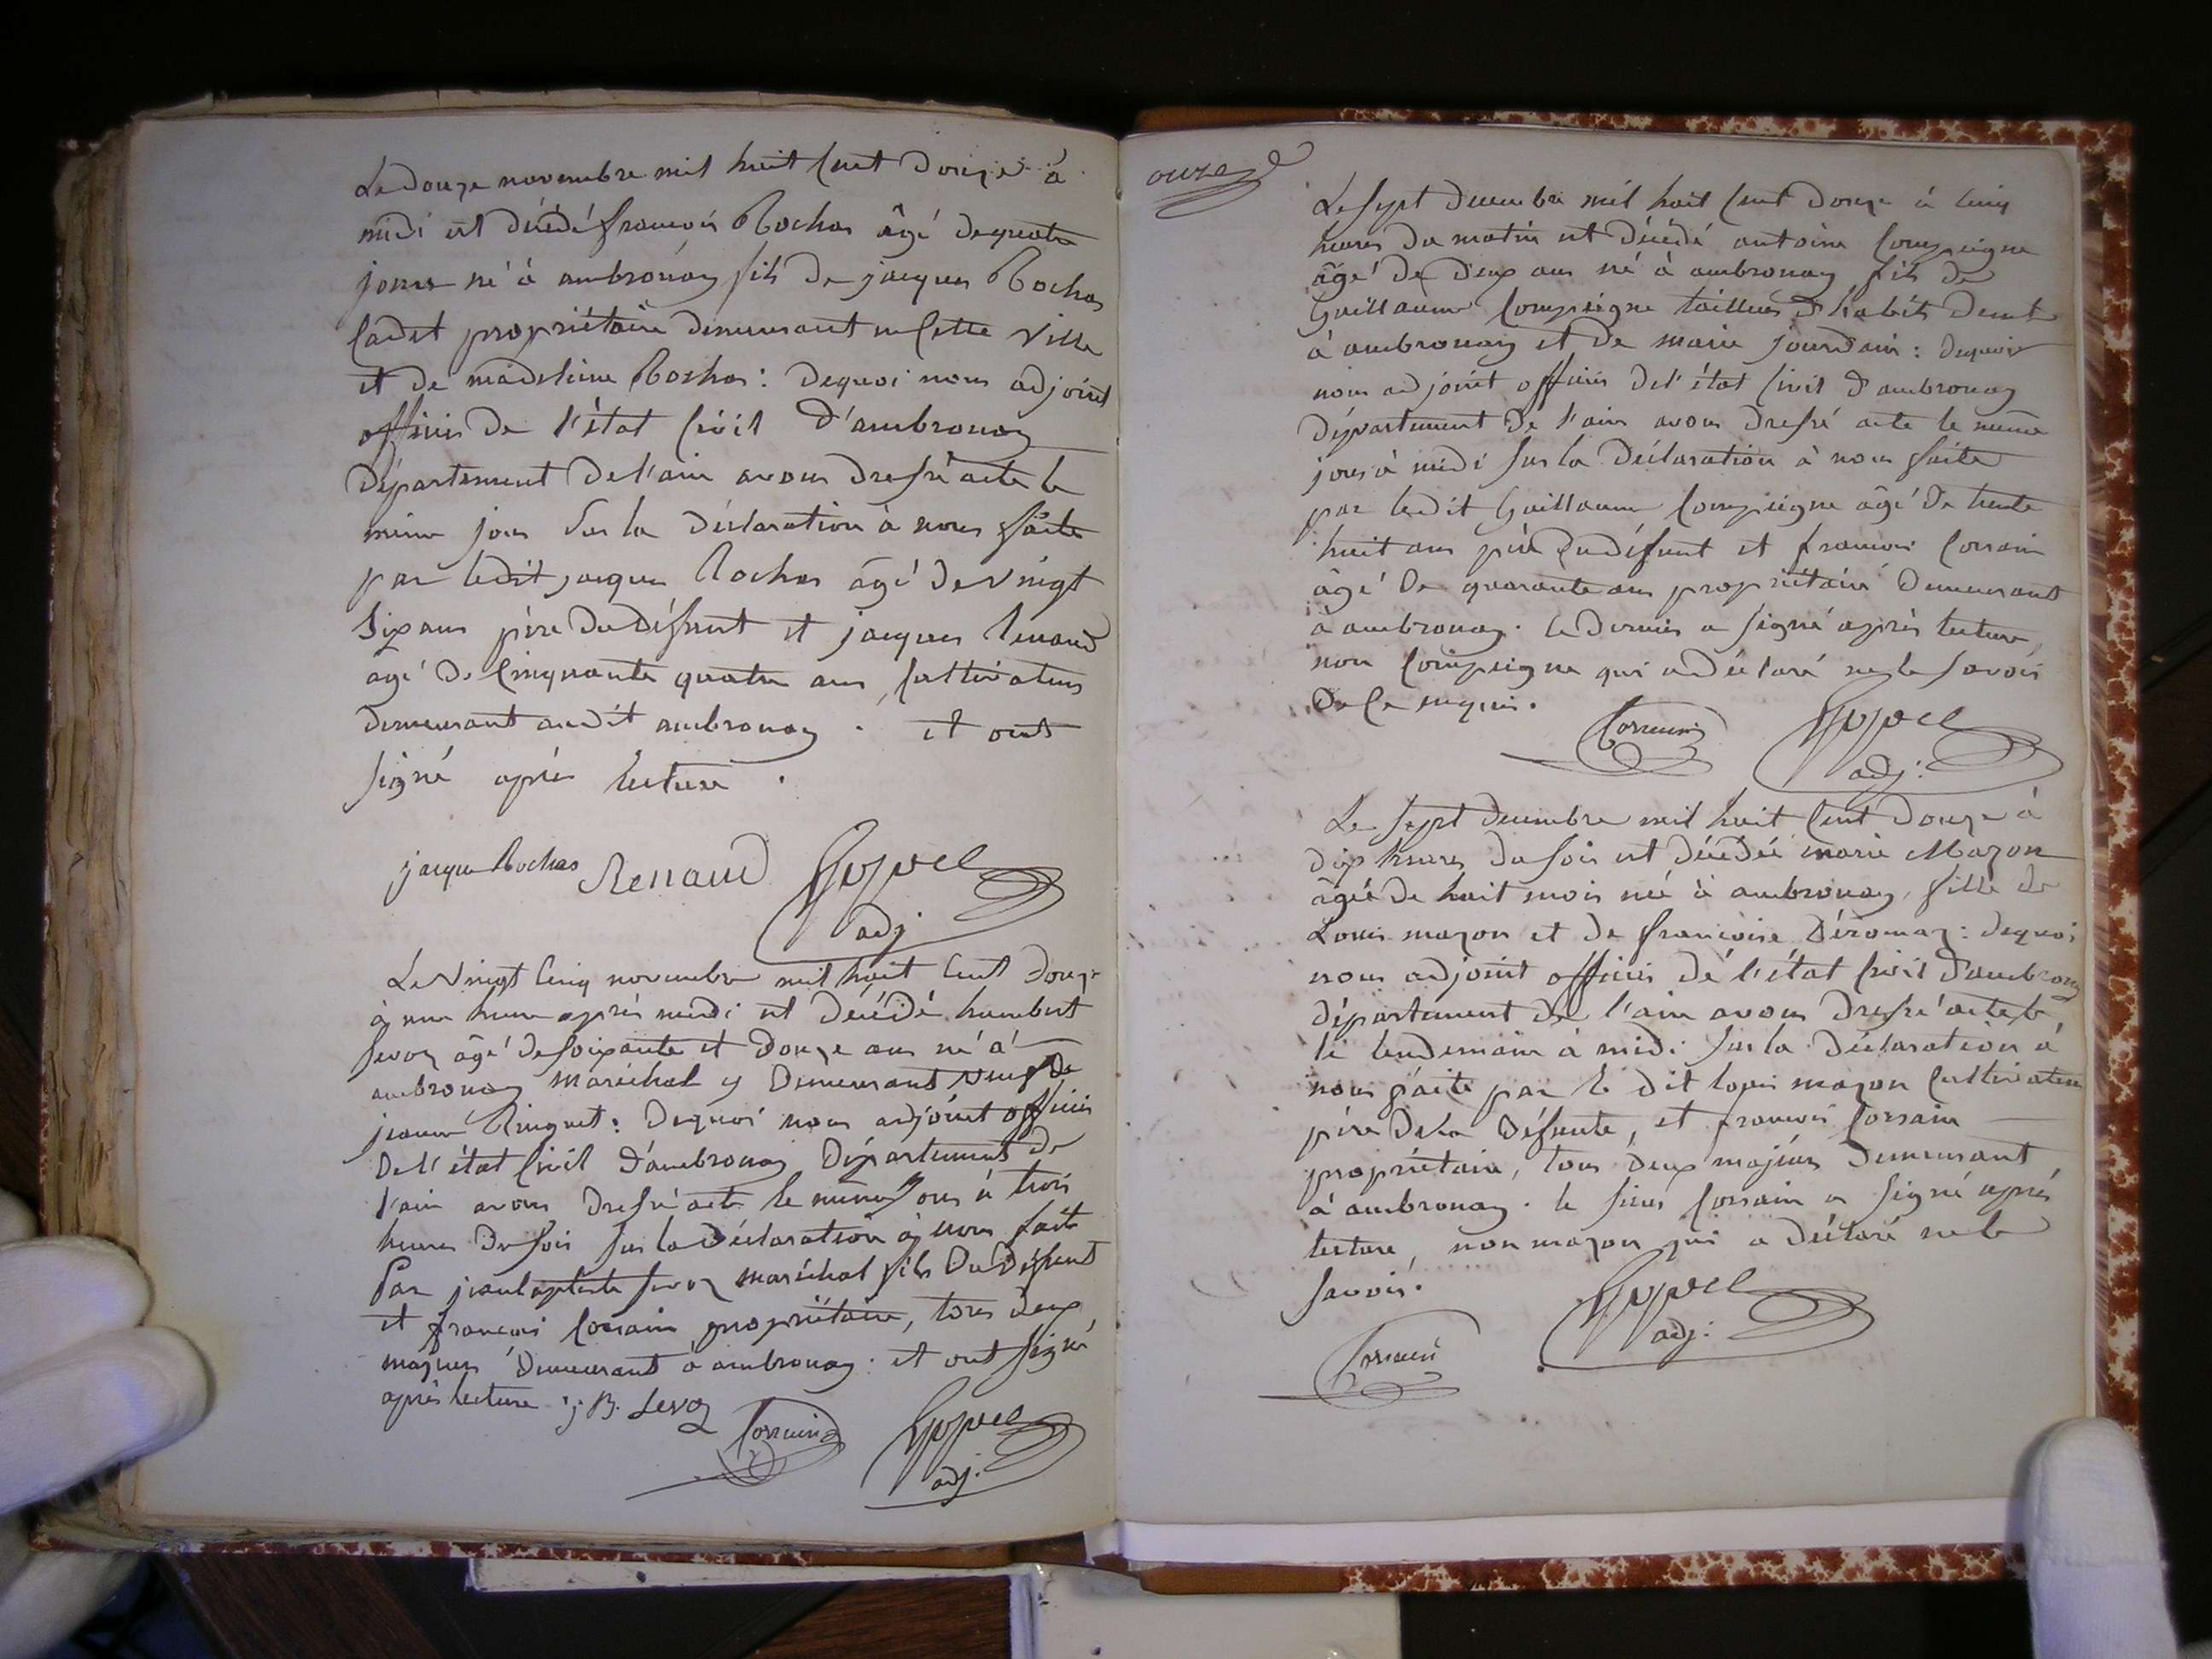 Le douze novembre mil huit cent douze à
midi est décédé françois Rochas âgé de quatre
jours né à ambronay fils de jacques Rochas
cadet propriétaire demeurant en cette ville
et de madeleine Rochas : de quoi nous adjoint
officier de l'état civil d'ambronay
département de l'ain avons dressé acte le
même jour sur la déclaration à nous faite
par ledit jacques Rochas âgé de vingt
six ans père du défunt et jacques Renaud
âgé de cinquante quatre ans, cultivateur
demeurant audit ambronay . et ont
signé après lecture .
jacque Rochas Renaud
adj
Le vingt cinq novembre mil huit cent douze
à une heure après midi est décédé humbert
Levoz âgé de soixante et douze ans né à
ambronay maréchal y demeurant veuf de
jeanne : de quoi nous adjoint officier
de l'état civil d'ambronay département de
l'ain avons dressé acte le même jour à trois
heures du soir sur la déclaration à nous faite
Par jean baptiste Levoz maréchal fils du défunt
et françois Corrain propriétaire, tous deux
majeurs demeurant à ambronay : et ont signé
après lecture j. B. Levoz Corrain
adj.
onze
Le sept decembre mil huit cent douze à cinq
heures du matin est décédé antoine Compeigne
âgé de deux ans né à ambronay fils de
Guillaume Compeigne tailleur d'habits demt
à ambronay et de marie jourdain : de quoi
nous adjoint officier de l'état civil d'ambronay
département de l'ain avons dressé acte le même
jour à midi sur la déclaration à nous faite
par ledit Guillaume Compeigne âgé de trente
huit ans père du défunt et françois Corrain
âgé de quarante ans propriétaire demeurant
à ambronay . le dernier a signé après lecture,
non Compeigne qui a déclaré ne le savoir
de ce enquis .
Corrain
adj.
Le sept decembre mil huit cent douze à
dix heures du soir est décédée marie Mazon
âgée de huit mois née à ambronay, fille de
Louis mazon et de françoise Déromaz : de quoi
nous adjoint officier de l'état civil d'ambronay
département de l'ain avons dressé acte le
le lendemain à midi sur la déclaration à
nous faite par le dit louis mazon cultivateur
père de la défunte, et françois Corrain
propriétaire, tous deux majeurs demeurant
à ambronay . le sieur Corrain a signé après
lecture, non mazon qui a déclaré ne le
savoir .
Corrain
adj.